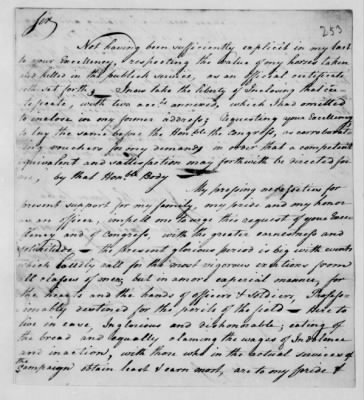 Sir
253
Not having been sufficiently explicit in my last
to your Excellency, respecting the value of my horses taken
and killed in the publick service, as an official certificate
sets forth, I now take the liberty of Inclosing that
with two annexed, which I had omitted
to inclose in my former address; Requesting your Excellency
to lay the same before the Honble the Congress, as corroborat
ing vouchers for my demands, in order that a competent
equivalent and satisfaction may forthwith be directed for
me, by that Honble Body
My pressing necessities for
present support for my family, my pride and my honor
as an officer, impell me to urge this request of your Excel
lency and of Congress, with the greater earnestness and
solicitude — the present glorious period is big with events
which loudly call for the most vigorous exertions from
all classes of men; but in a more especial manner, for
the hearts and the hands of officers & soldiers,
destined for the perils of the field — here to
live in ease, Inglorious and dishonorable; eating of
the bread and equally claiming the wages of Indolence
and inaction, with those who in the actual services of
the Campaign obtain least & earn most, are to my pride &